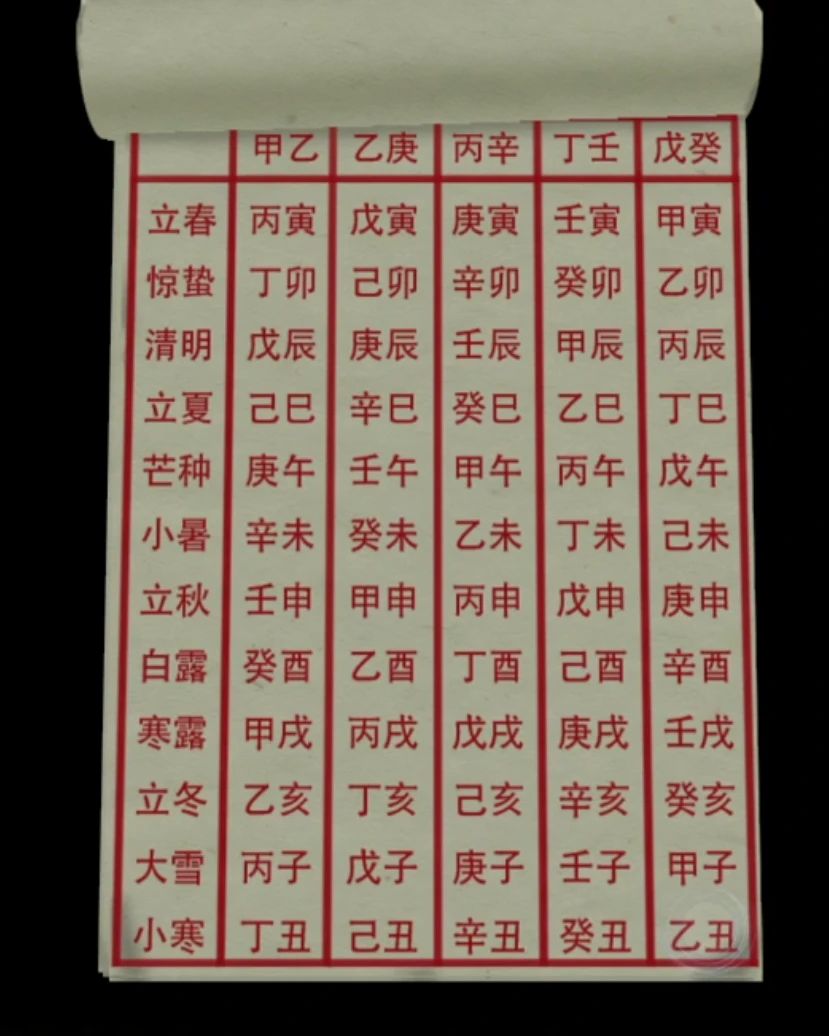 甲乙 乙庚 丙辛 丁壬 戊癸
立春 丙寅 戊寅 庚寅 壬寅 甲寅
惊蛰 丁卯 己卯 辛卯 癸卯 乙卯
清明 戊辰 庚辰 壬辰 甲辰 丙辰
立夏 己巳 辛巳 癸巳 乙巳 丁巳
芒种 庚午 壬午 甲午 丙午 戊午
小暑 辛未 癸未 乙未 丁未 己未
立秋 壬申 甲申 丙申 戊申 庚申
白露 癸酉 乙酉 丁酉 己酉 辛酉
寒露 甲戌 丙戌 戊戌 庚戌 壬戌
立冬 乙亥 丁亥 己亥 辛亥 癸亥
大雪 丙子 戊子 庚子 壬子 甲子
小寒 丁丑 己丑 辛丑 癸丑 乙丑